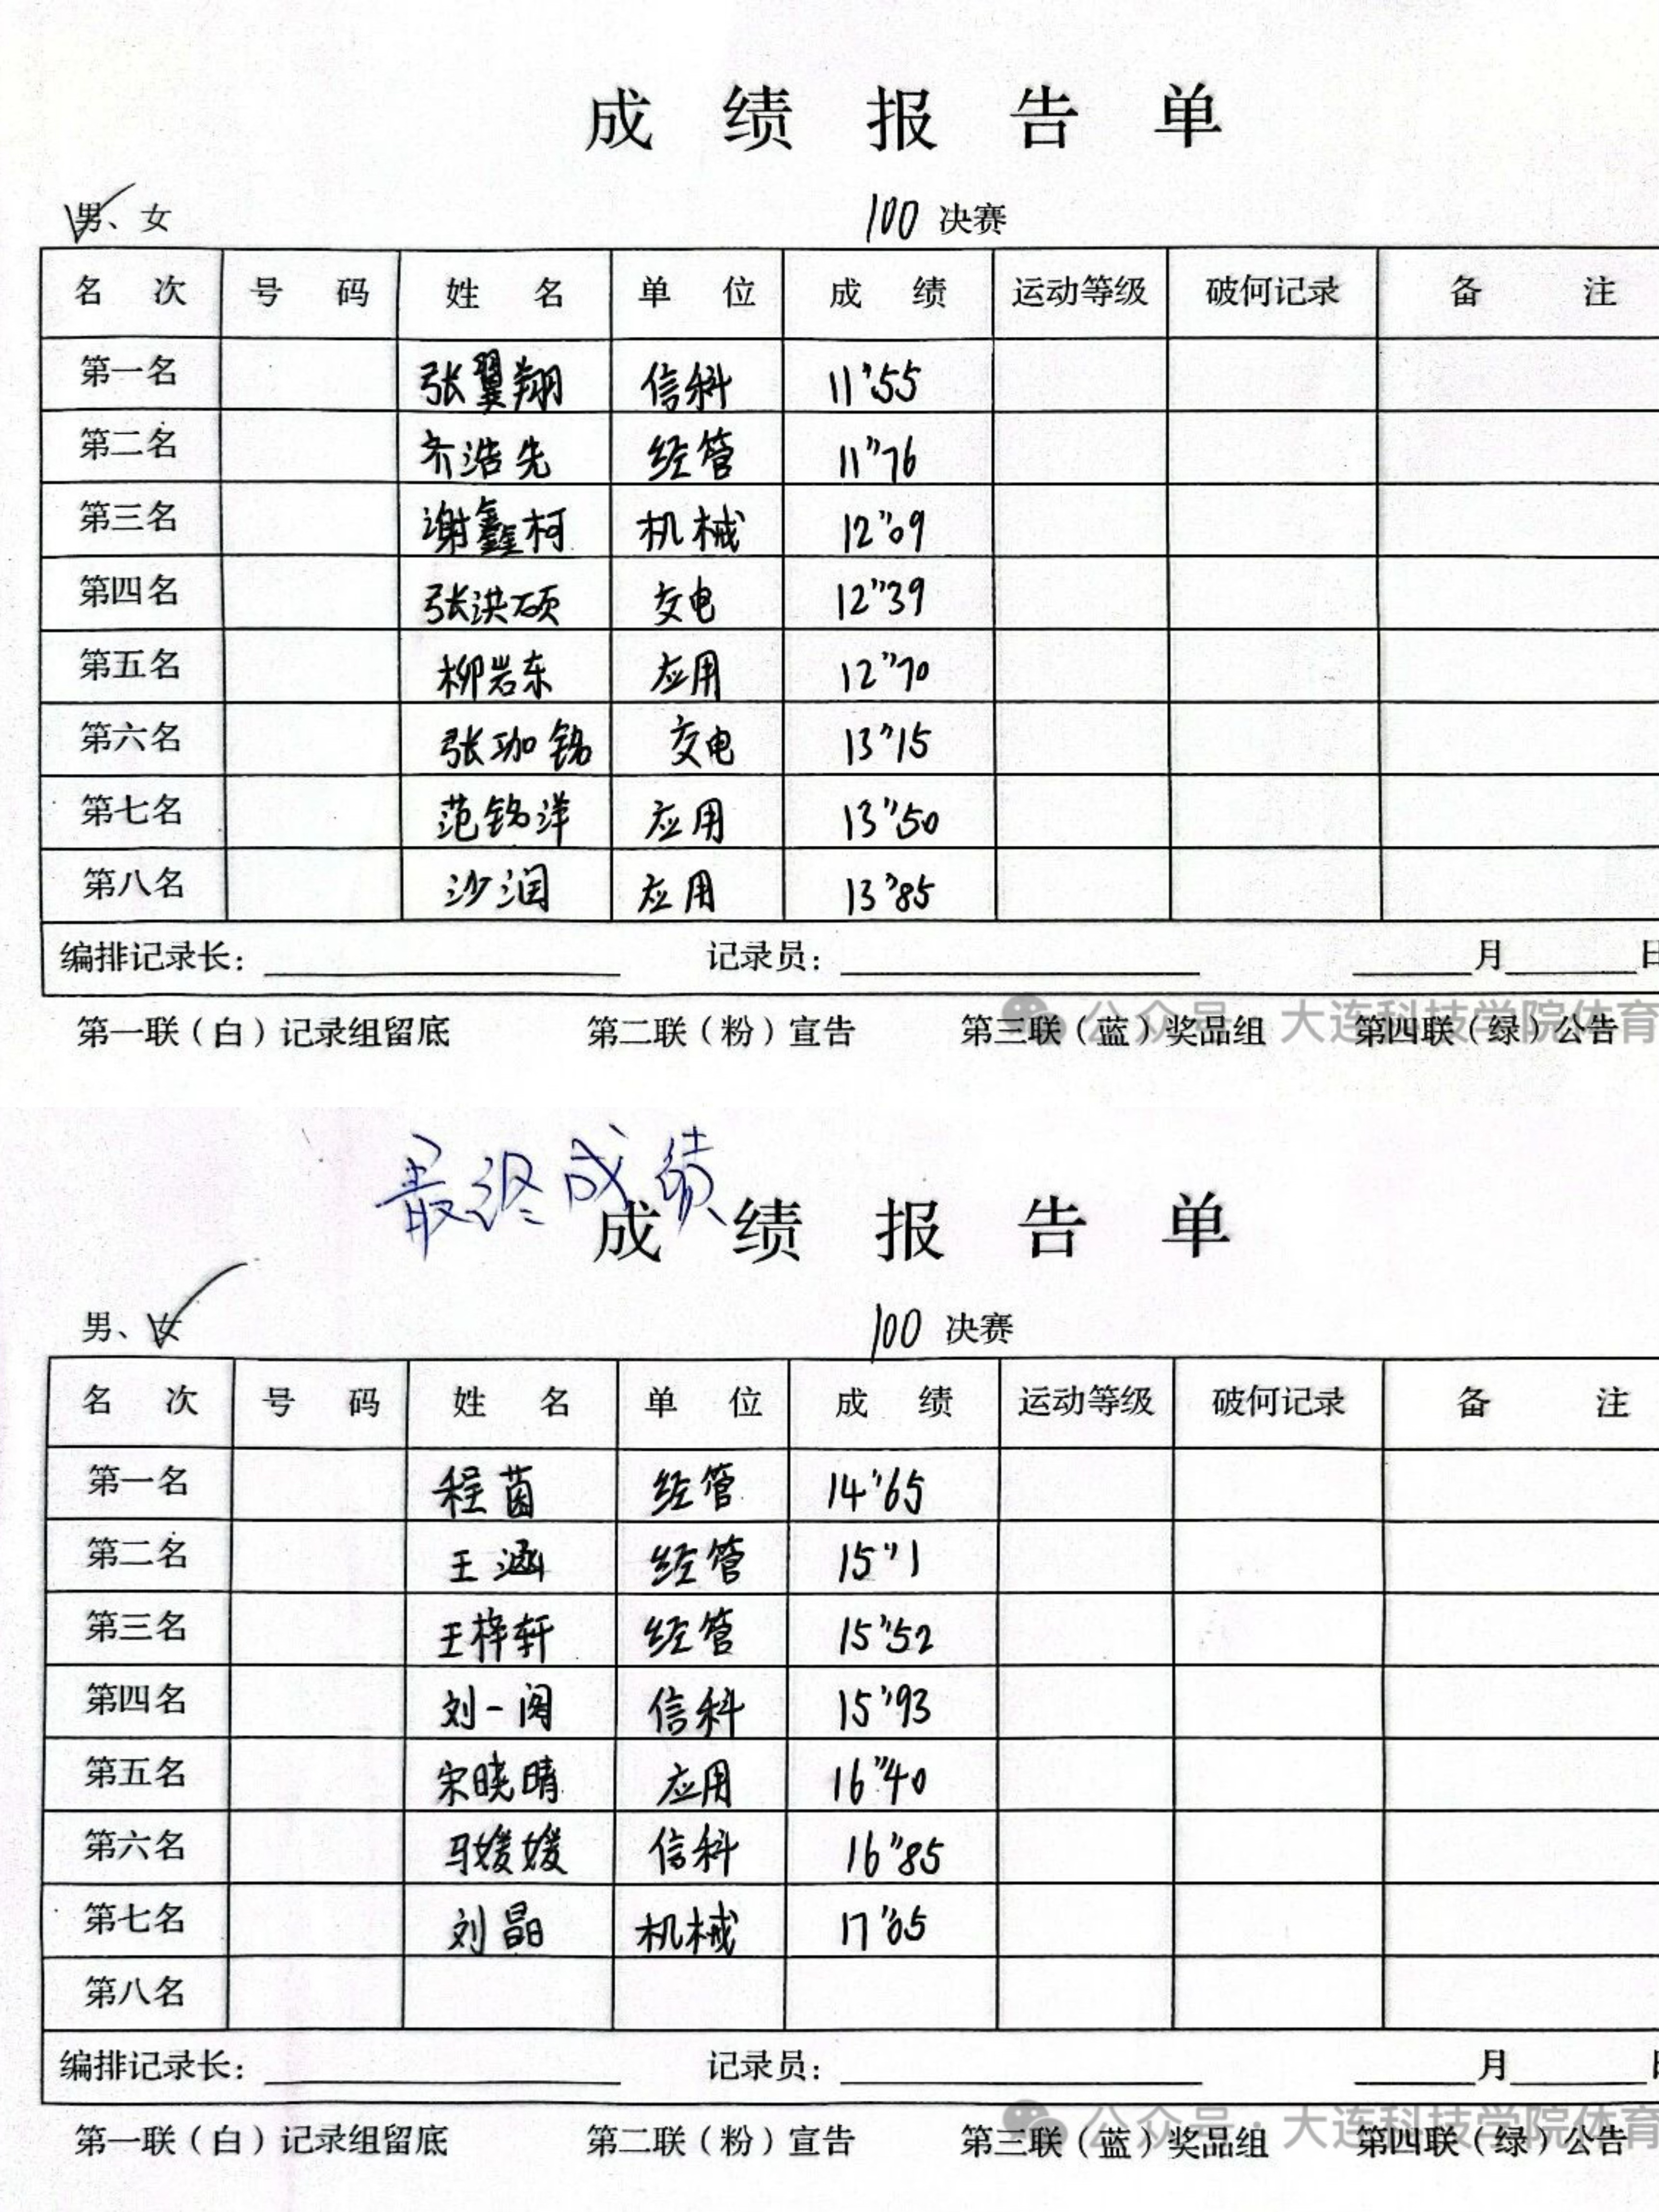 成绩报告单
男、女 100 决赛
名次 号码 姓名 单位 成绩 运动等级 破何记录 备注
第一名 张翼翔 信科 11"55
第二名 齐浩先 经管 11"76
第三名 谢鑫柯 机械 12"09
第四名 张洪硕 交电 12"39
第五名 柳岩东 应用 12"70
第六名 张珈铭 交电 13"15
第七名 范铭洋 应用 13"50
第八名 沙润 应用 13"85
编排记录长： 记录员： 月 日
第一联（白）记录组留底 第二联（粉）宣告 第三联（蓝）奖品组 第四联（绿）公告
公众号·大连科技学院体育
最终成绩
成绩报告单
男、女 100 决赛
名次 号码 姓名 单位 成绩 运动等级 破何记录 备注
第一名 程茵 经管 14"65
第二名 王涵 经管 15"1
第三名 王梓轩 经管 15"52
第四名 刘一阅 信科 15"93
第五名 宋晓晴 应用 16"40
第六名 马媛媛 信科 16"85
第七名 刘晶 机械 17"05
第八名
编排记录长： 记录员： 月 日
第一联（白）记录组留底 第二联（粉）宣告 第三联（蓝）奖品组 第四联（绿）公告
公众号·大连科技学院体育